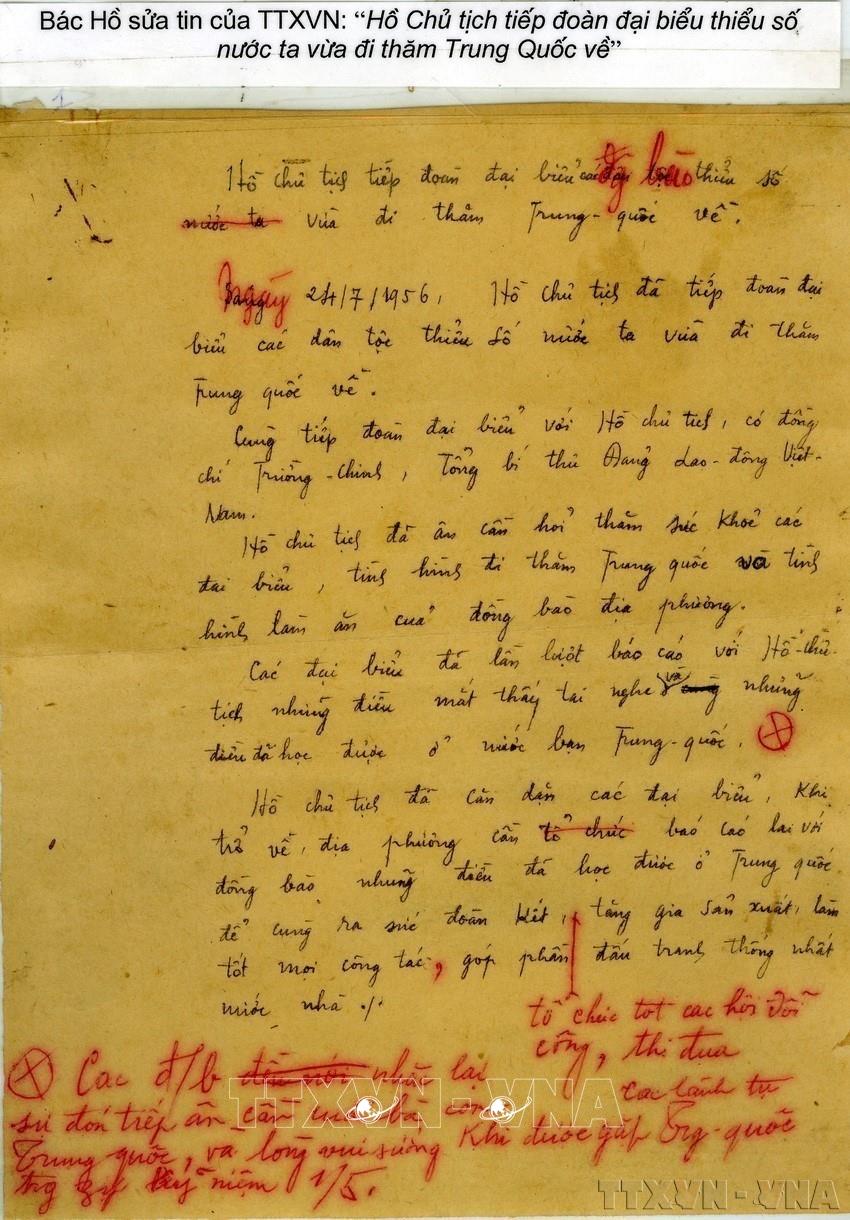 Bác Hồ sửa tin của TTXVN: “Hồ Chủ tịch tiếp đoàn đại biểu thiểu số
nước ta vừa đi thăm Trung Quốc về”
1
Hồ chủ tịch tiếp đoàn đại biểu đg bào thiểu số
nước ta vừa đi thăm Trung-quốc về.
Ngày 24/7/1956, Hồ chủ tịch đã tiếp đoàn đại
biểu các dân tộc thiểu số nước ta vừa đi thăm
Trung quốc về.
Cùng tiếp đoàn đại biểu với Hồ chủ tịch, có đồng
chí Trường-Chinh, Tổng bí thư Đảng Lao-động Việt-
Nam.
Hồ chủ tịch đã ân cần hỏi thăm sức khoẻ các
đại biểu, tình hình đi thăm Trung quốc và tình
hình làm ăn của đồng bào địa phương.
Các đại biểu đã lần lượt báo cáo với Hồ-chủ-
tịch những điều mắt thấy tai nghe và những
điều đã học được ở nước bạn Trung-quốc. ⊗
Hồ chủ tịch đã căn dặn các đại biểu, khi
trở về, địa phương cần tổ chức báo cáo lại với
đồng bào những điều đã học được ở Trung quốc
để cùng ra sức đoàn kết, tăng gia sản xuất, làm
tốt mọi công tác, góp phần đấu tranh thống nhất
nước nhà ./.
tổ chức tot cac hội đổi
công, thi đua
⊗ Cac đ/b nhắc lại
sự đón tiếp ân cần của bà con
Trung-quốc, va long vui sướng khi được gặp các lãnh tụ Trg-quốc
trg kỷ niệm 1/5.
TTXVN-VNA
TTXVN-VNA